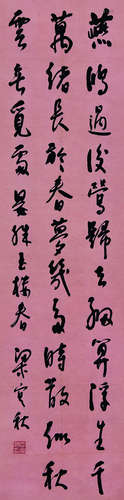 燕鴻過後鶯歸去細算浮生千
萬緒長於春夢幾多時散似秋
雲無覓處晏殊玉樓春 梁實秋